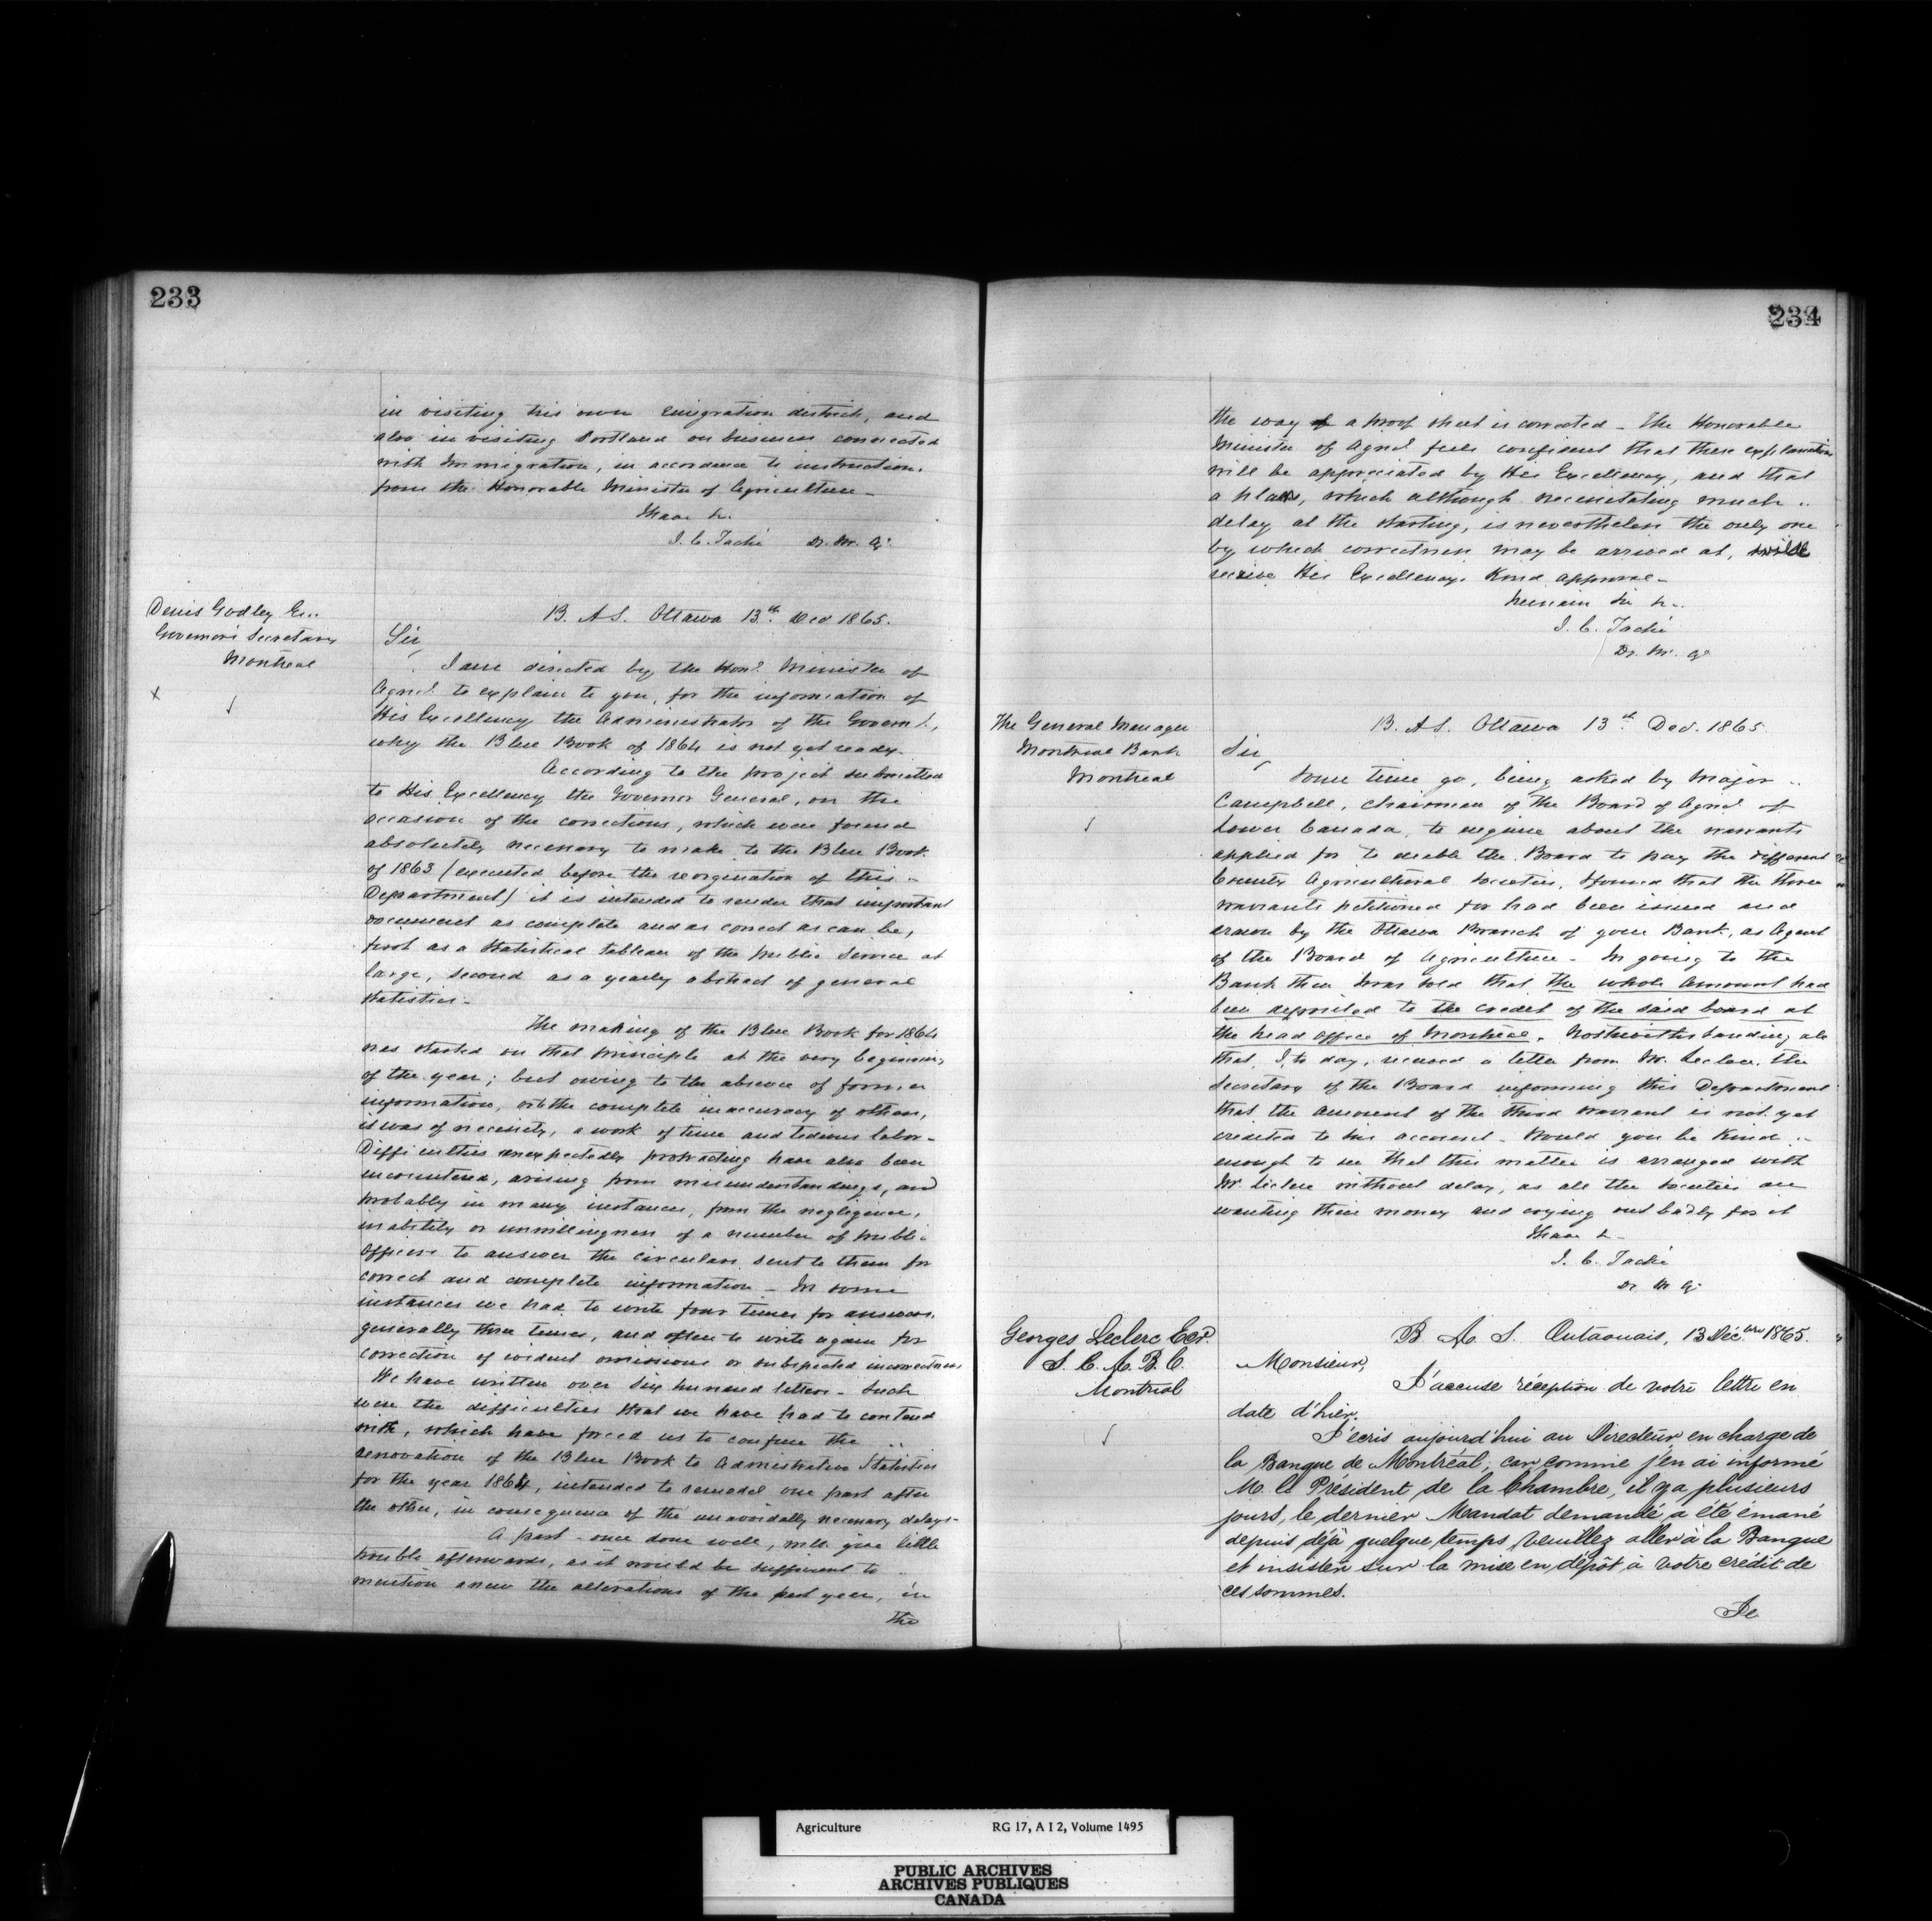 233
in visiting his own Emigration district, and
also in visiting Portland on business connected
with Immigration, in accordance to instruction.
from the Honorable Minister of Agriculture _
I have &c.
J. C. Taché Dr. M. Ag.
Denis Godley Esq.
Governor's Secretary
Montreal
x
B. A S. Ottawa 13th Decr 1865.
Sir,
I am directed by the Honl. Minister of
Agricl. to explain to you, for the information of
His Excellency the Administrator of the Governmt.,
why the Blue Book of 1864 is not yet ready.
According to the project submitted
to His Excellency the Governor General, on the
occasion of the corrections, which were found
absolutely necessary to make to the Blue Book
of 1863 (executed before the reorgination of this -
Department) it is intended to render that important
document as complete and as correct as can be,
first as a statistical tableau of the public Service at
large, second as a yearly abstract of general
statistics -
The making of the Blue Book for 1864
was started on that principle at the very beginning
of the year; but owing to the absence of former
information, or the complete inaccuracy of others,
it was of necessity, a work of time and tedious labor -
Difficulties unexpectedly protracting have also been
incountered, arising from misunderstandings, and
probably in many instances, from the negligence,
inability or unwillingness of a number of public
Officers to answer the circulars sent to them for
correct and complete information - In some
instances we had to write four times for answers,
generally three times, and often to write again for
correction of evident omissions or suspected incorrectness
We have written over Six hundred letters - Such
were the difficulties that we have had to contend
with, which have forced us to confine the
renovation of the Blue Book to Administrative Statistics
for the year 1864, intended to remodel one part after
the other, in consequence of the unavoidally necessary delays -
A part - once done well, will give little
trouble afterwards, as it would be sufficient to -
mention anew the alterations of the past year, in
the
234
the way of a proof sheet is corrected - The Honorable
Minister of Agricl. feels confident that these explanations
will be appreciated by His Excellency, and that
a plan, which although necessitating much
delay at the starting, is nevertheless the only one
by which correctness may be arrived at, will
receive His Excellency's Kind approval -
I remain Sir &c.
J. C. Taché
Dr. M. Ag.
The General Manager
Montreal Bank
Montreal
B. A S. Ottawa 13th Decr. 1865
Sir,
Some time go, being asked by Major
Campbell, Chairman of the Board of Agricl. of
Lower Canada, to enquire about the warrants
applied for to enable the Board to pay the different
County Agricultural Societies, I found that the three
warrants petitioned for had been issued and
drawn by the Ottawa Branch of your Bank, as Agent
of the Board of Agriculture - In going to the
Bank then I was told that the whole amount had
been deposited to the credit of the said board at
the head office of Montreal. Nothwithstanding all
that, I, to day, received a letter from Mr. Leclerc, the
Secretary of the Board informing this Department
that the amount of the third warrant is not yet
credited to his account - Would you be Kind
enough to see that this matter is arranged with
Mr. Leclerc without delay, as all the societies are
wanting their money and crying out badly for it
I have &
J. C. Taché
Dr M Ag.
Georges Leclerc Ecr.
S. C. A. B. C.
Montréal
B. A. S. Outaouais, 13 Décbre 1865.
Monsieur,
J'accuse réception de votre lettre en
date d'hier.
J'écris aujourd'hui au Directeur en charge de
la Banque de Montréal, car, comme j'en ai informé
M. le Président de la Chambre, il y a plusieurs
jours, le dernier Mandat demandé a été émané
depuis déjà quelque temps, veuillez aller à la Banque
et insister sur la mise en dépôt à votre crédit de
ces sommes.
Je
Agriculture RG 17, A I 2, Volume 1495
PUBLIC ARCHIVES
ARCHIVES PUBLIQUES
CANADA